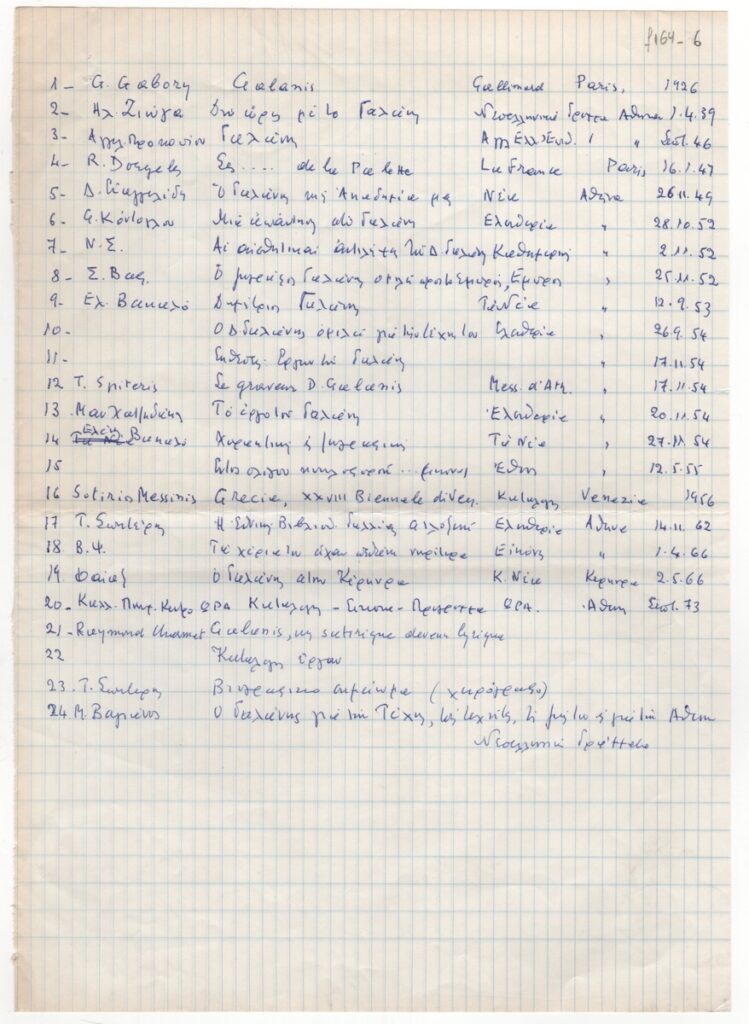 f164-6
1- G. Gabory Galanis Gallimard Paris, 1926
2- Ηλ. Ζιώγα Δυο ώρες με το Γαλάνη Νεοελληνικά Γράμματα Αθήνα 1.4.39
3- Αγγ. Προκοπίου Γαλάνης Αγγλ Ελλ Επιθ. " Σεπτ. 46
4- R. Dorgelès de la Palette La France Paris 16.1.47
5- Δ. Ευαγγελίδη Ο Γαλάνης της Ακαδημία μας Νέα Αθήνα 26.11.49
6- Φ. Κόντογλου Μιά απάντηση στό Γαλάνη Ελευθερία " 28.10.52
7- Ν.Σ. Αι αισθητικαί αντιλήψεις του Δ. Γαλάνη Καθημερινή " 2.11.52
8- Σ. Βας. Ο Γαλάνης Εμπρός " 25.11.52
9- Ελ. Βακαλό Δημήτρης Γαλάνης Τα Νέα " 12.9.53
10- Ο Δ Γαλάνης ομιλεί για την τέχνη του Ελευθερία " 26.9.54
11- Έκθεσις Έργων του Γαλάνη " 17.11.54
12 T. Spiteris Le graveur D. Galanis Mess. d'Ath. " 17.11.54
13 Μαν Χατζηδάκης Το έργο του Γαλάνη Ελευθερία " 20.11.54
14 Ελένη Βακαλό Χαρακτική ή ζωγραφική Τα Νέα " 27.11.54
15 Έθνος " 12.5.55
16 Sotirio Messinis Grecia, XXVIII Biennale di Ven. Κατάλογος Venezia 1956
17 Τ. Σπητέρης Η Εθνική Βιβλιοθ. Γαλλίας Ελευθερία Αθήνα 14.11.62
18. Β.Ψ. Τα χέρια του είχαν Εικόνες " 1.4.66
19. Φαίαξ Ο Γαλάνης στην Κέρκυρα Κ. Νέα Κέρκυρα 2.5.66
20- Καλλ. Πνευμ. Κέντρο ΩΡΑ Κατάλογος ΩΡΑ. Αθήνα Σεπτ. 73
21- Raymond Charmet Galanis, un satirique devenu lyrique
22 Κατάλογος έργων
23. Τ. Σπητέρης Βιογραφικό σημείωμα (χειρόγραφο)
24. Μ. Βαρμένος Ο Γαλάνης για την Τέχνη, τους τεχνίτες, και για την Αθήνα
Νεοελληνικά Γράμματα